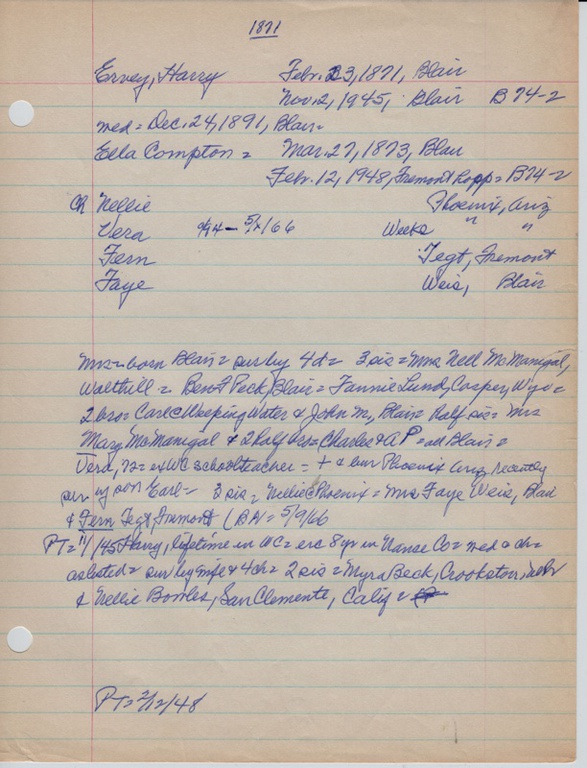 1871
Ervey, Harry Febr. 23, 1871, Blair
Nov. 2, 1945, Blair B 74-2
med = Dec. 24, 1891, Blair =
Ella Compton = Mar. 27, 1873, Blair
Febr. 12, 1948, Fremont hosp = B74-2
Ch Nellie Phoenix, Ariz
Vera - 5/ /66 Weeks " "
Fern Tegt, Fremont
Faye Weis, Blair
Mrs = born Blair = sur by 4 d = 3 sis = Mrs Nell McManigal,
Walthill = Ben F Peck, Blair = Fannie Lund, Casper, Wyo =
2 bro = Carl @ Weeping Water & John M, Blair half sis = Mrs
Mary McManigal & 2 half bro = Charles & A P = all Blair =
Vera, 72 = ex WC schoolteacher = + & bur Phoenix Ariz recently
sur by son Earl = 3 sis = Nellie @ Phoenix = Mrs Faye Weis, Blair
& Fern Tegt, Fremont (BA = 5/9/66
PT = 11/ /45 Harry, lifetime in WC = exc 8 yr in Nance Co = med & ch =
as listed = sur by wife & 4 ch = 2 sis = Myra Beck, Crookston, Nebr
& Nellie Bowles, San Clemente, Calif =
PT = 2/12/48